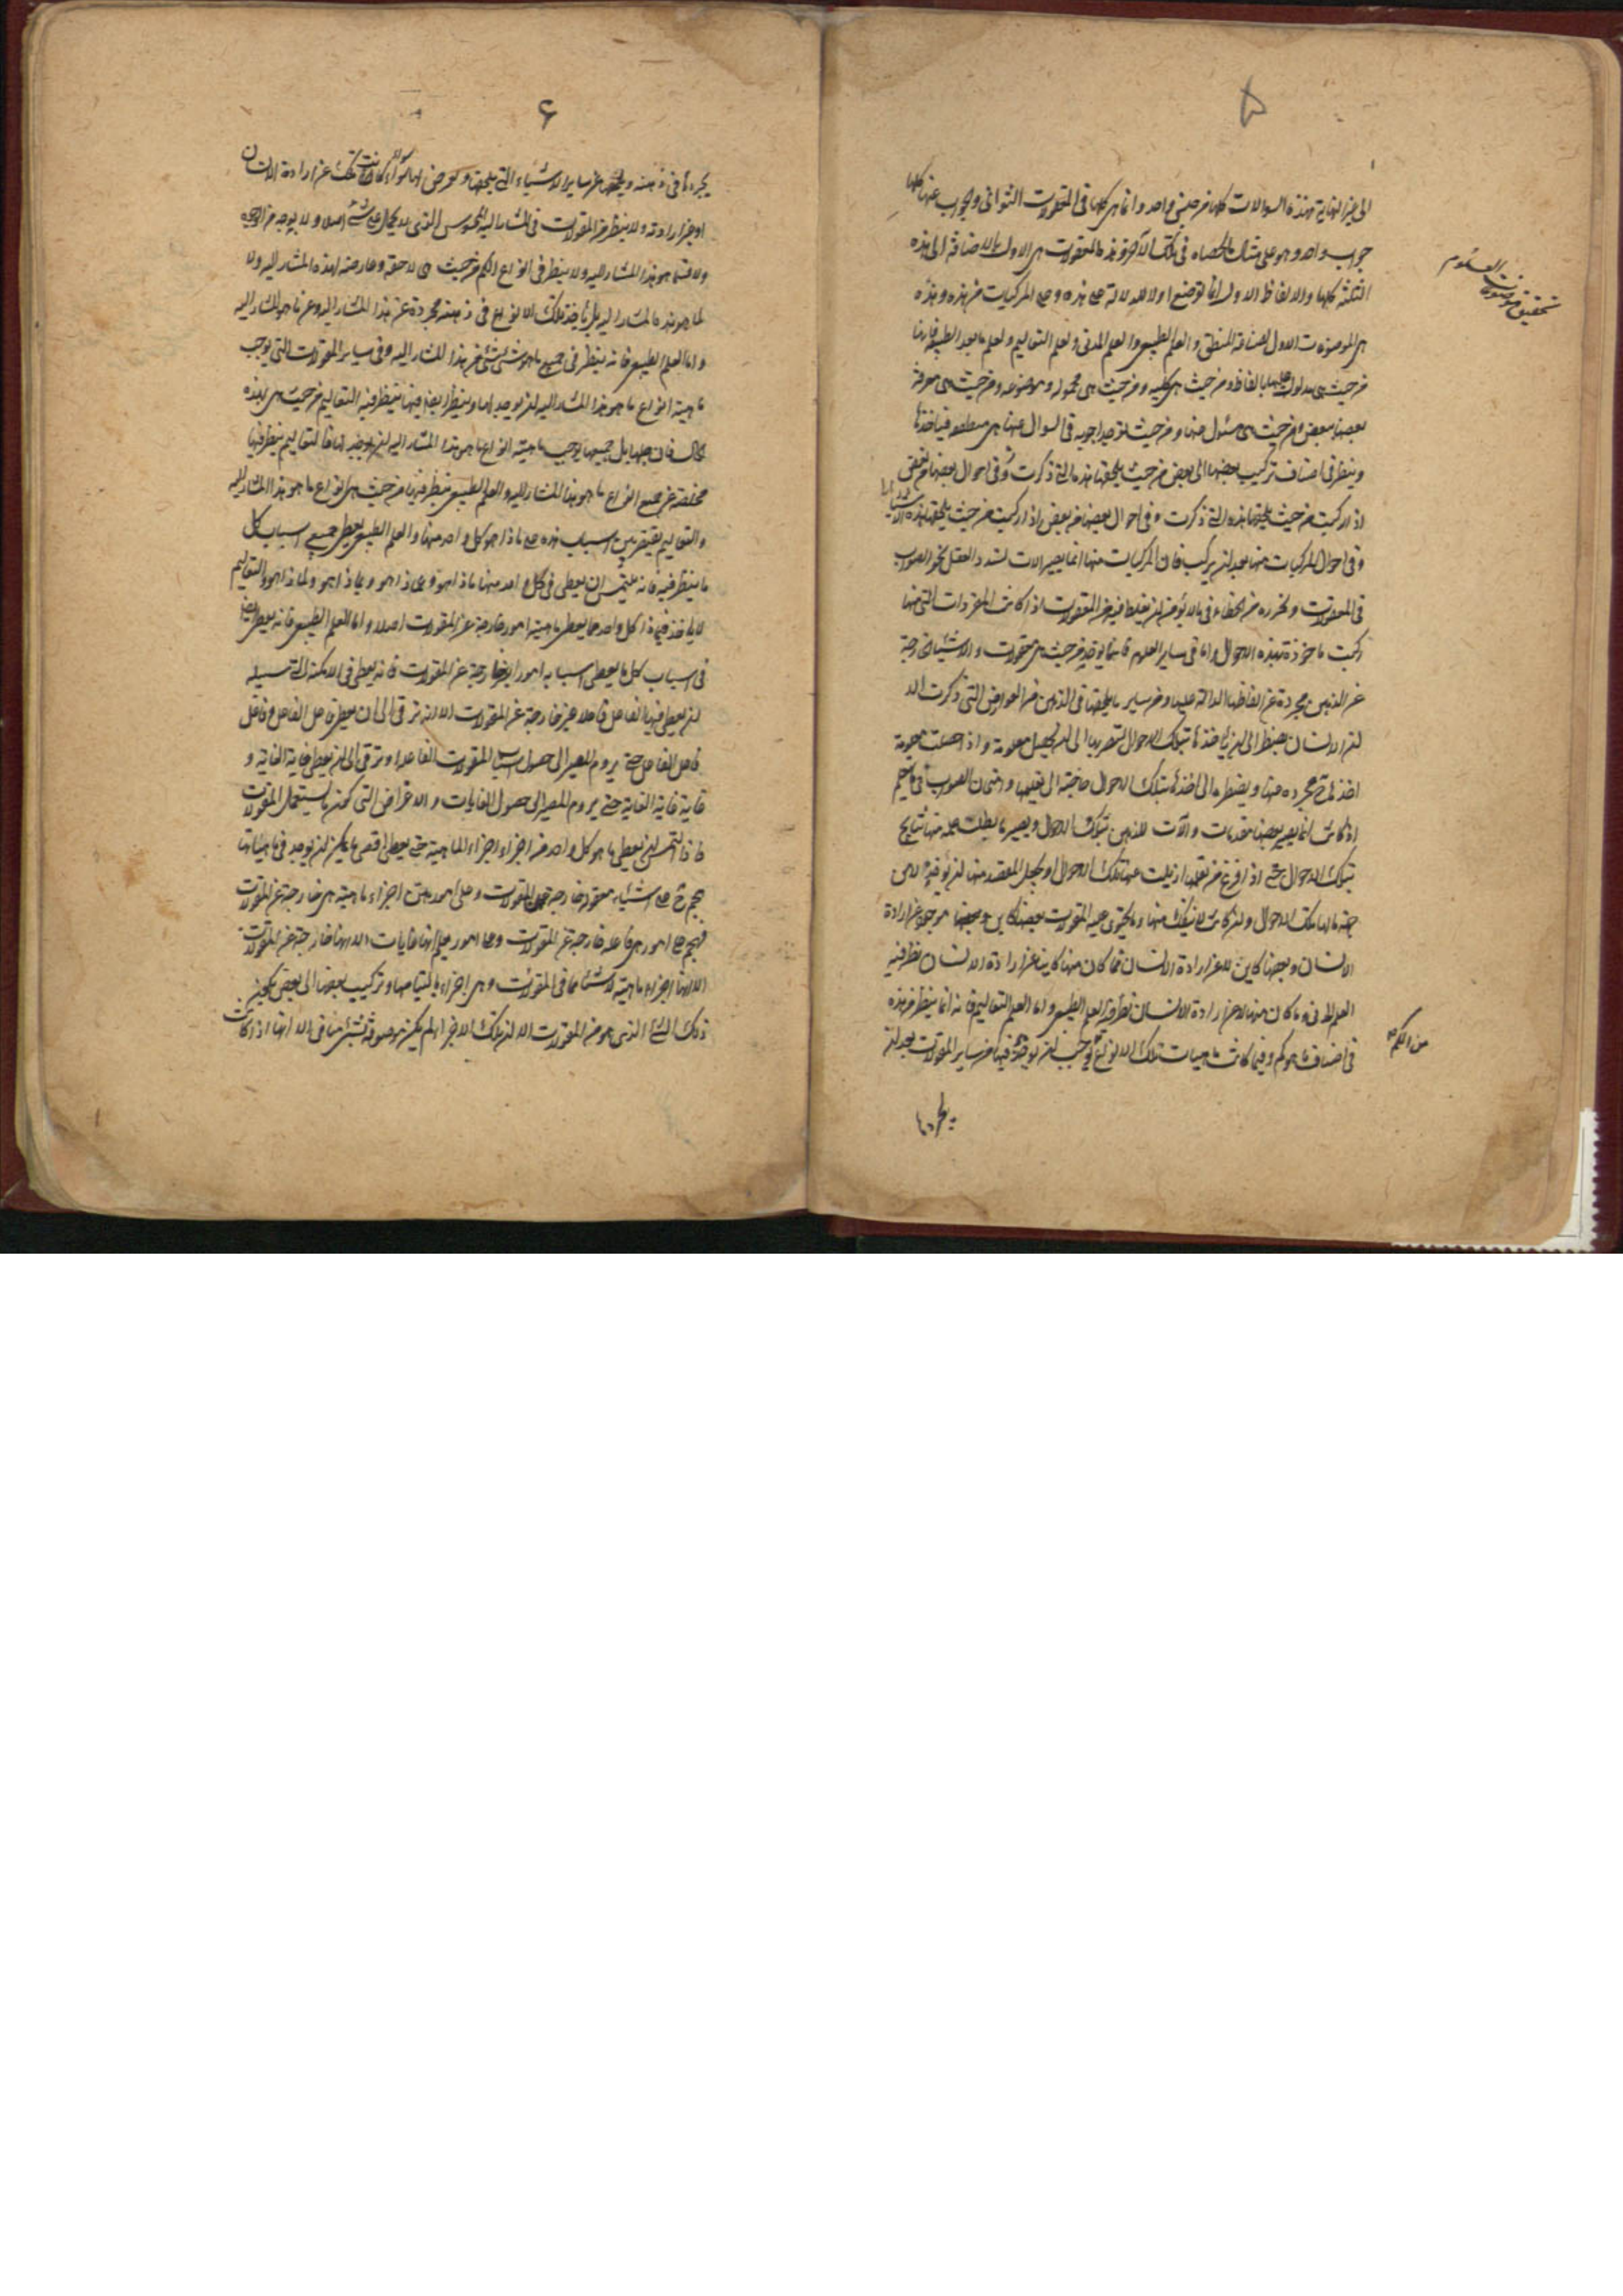 ٥
الى غير النهاية فهذه السوالات كلها من جنس واحد وانما هى كلها فى المعقولات الثوانى والجواب عنها كلها
جواب واحد وهو على مثال ما لخصناه فى تلك الاخر وهذه المعقولات هى الاول بالاضافة الى هذه
الثلثة كلها والالفاظ الاول انما توضع اولا للدلالة على هذه وعلى المركبات من هذه وهذه
هى الموضوعات الاول لصناعة المنطق والعلم الطبيعى والعلم المدنى ولعلم التعاليم ولعلم ما بعد الطبيعة فانها
من حيث هى مدلول عليها بالفاظ ومن حيث هى كلية ومن حيث هى محمولة وموضوعة ومن حيث هى معرفة
بعضها ببعض ومن حيث هى مسئول عنها ومن حيث تؤخذ اجوبة فى السوال عنها هى منطقية فياخذها
وينظر فى اصناف تركيب بعضها الى بعض من حيث يلحقها هذه التى ذكرت وفى احوال
اذا ركبت من حيث يلحقها هذه التى ذكرت وفى احوال بعضها من بعض اذا ركبت من حيث يلحقها هذه الاشياء
وفى احوال المركبات منها بعد ان تركب فان المركبات منها انما تصير آلات تسدد العقل نحو الصواب
فى المعقولات وتحرزه من الخطاء فى ما لا يؤمن ان يغلط فيه من المعقولات اذا كانت المفردات التى منها
ركبت ماخوذة بهذه الاحوال واما فى ساير العلوم فانما تؤخذ من حيث هى معقولات والاشياء الخارجة
عن الذهن مجردة عن الفاظها الدالة عليها ومن ساير ما يلحقها فى الذهن من العوارض التى ذكرت الا
ان الانسان يضطر الى ان ياخذها بتلك الاحوال ليصير بها الى ان تحصل معلومة واذا حصلت معلومة
اخذها مجردة منها ويضطره الى اخذها بتلك الاحوال حاجته الى تعليمها
اذا كانت انما يصير بعضها مقدمات وآلات للذهن بتلك الاحوال ويصير ما يطلب علمه منها نتايج
بتلك الاحوال حتى اذا فرغ من تعلمها ازيلت عنها تلك الاحوال او يجعل المقصد منها ان تؤخذ
من جهة ما لها تلك الاحوال وان كانت لا تنفك منها وما يحتوى عليه المقولات بعضها كاين موجود عن ارادة
الانسان وبعضها كاين لا عن ارادة الانسان فما كان منها كاينا عن ارادة الانسان نظر فيه
العلم المدنى وما كان منها لا عن ارادة الانسان نظر فيه العلم الطبيعى واما العلم التعاليم فانه انما ينظر من هذه
فى اصناف ما هو كم وفيما كانت ماهيات تلك الانواع توجب ان يوجد فيها من ساير المقولات بعد ان
يجردها
تحقيق موضوعات العلوم
من الكم
٦
يجردها فى ذهنه ويخلصها عن ساير الاشياء التى تلحقها وتعرض لها سواء كانت تلك عن ارادة الانسان
او عن غير ارادته ولا ينظر من المقولات فى المشار اليه المحسوس الذى لا يحمل على شئ اصلا ولا بوجه من الوجوه
ولا فيما هو هذا المشار اليه ولا ينظر فى انواع الكم من حيث هى لاحقة وعارضة لهذا المشار اليه ولا
لما هو هذا المشار اليه بل ياخذ تلك الانواع فى ذهنه مجردة عن هذا المشار اليه وعن ما هو المشار اليه
واما العلم الطبيعى فانه ينظر فى جميع ما هو شئ شئ من هذا المشار اليه وفى ساير المقولات التى توجب
ماهية انواع ما هو هذا المشار اليه ان توجد لها وينظر ايضا فيما ينظر فيه التعاليم من حيث هى بهذه
الحال فان جلها بل جميعها توجب ماهية انواع ما هو هذا المشار اليه ان توجد لها فالتعاليم ينظر فيها
مخلصة عن جميع انواع ما هو هذا المشار اليه والعلم الطبيعى ينظر فيها من حيث هى انواع ما هو هذا المشار اليه
والتعاليم يقتصر من اسباب هذه على ماذا هو كل واحد منها والعلم الطبيعى يعطى جميع اسباب كل
ما ينظر فيه فانه يلتمس ان يعطى فى كل واحد منها ماذا هو وعن ماذا هو وبماذا هو ولماذا هو والتعاليم
لا ياخذ فى ماذا كل واحد مما يعطى ماهيته امورا خارجة عن المقولات اصلا واما العلم الطبيعى فانه يعطى ايضا
فى اسباب كل ما يعطى اسبابه امورا خارجة عن المقولات فانه يعطى فى الامكنة التى سبيله
ان يعطى فيها الفاعل فاعلا خارجة عن المقولات الا انه ترقى الى ان يعطى فاعل الفاعل وفاعل
فاعل الفاعل حتى يروم المصير الى حصول اسباب المقولات الفاعلة وترقى الى ان يعطى غاية الغاية و
غاية غاية الغاية حتى يروم المصير الى حصول الغايات والاغراض التى لها تشتمل المقولات
فاذا التمس ان يعطى ما هو كل واحد من اجزاء اجزاء الماهية حتى يعطى اقصى ما يمكن ان يوجد فى ماهياتها
هجم ح على اشياء معقولة خارجة عن المقولات وعلى امور هى اجزاء ماهية هى خارجة عن المقولات
فيهجم على امور هى فاعلة خارجة عن المقولات وعلى امور يعلم انها غايات الا انها خارجة عن المقولات
الا انها اجزاء ماهية لاشياء مما فى المقولات وهى اجزاء بالتيامها وتركيب بعضها الى بعض يكون
ذلك الشئ الذى هو من المقولات الا ان تلك الاجزاء لم تكن موصوفة بشئ منافى الا انها اذا كانت